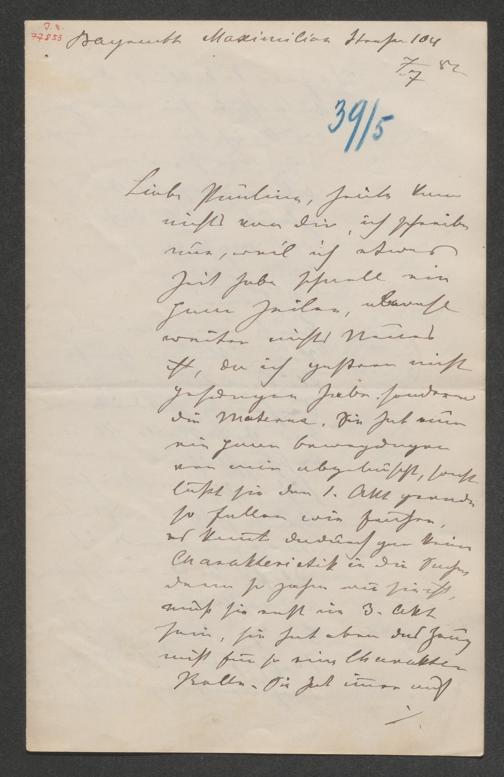 I. N. 77853
Bayreuth Maximilian Strasse 104
7/7 82
39/5
Liebe Pauline, heute kam
nichts von dir, ich schreibe
nur, weil ich etwas
Zeit habe schnell ein
paar Zeilen, obwohl
weiter nichts Neues
ist, da ich gestern nicht
gesungen habe. sondern
die Materna. Sie hat nun
ein paar bewegungen
von mir abgelauscht, sonst
läßt sie den 1. Akt gerade
so fallen wie früher,
es kommt dadurch gar keine
Charakteristik in die Sache
denn so zahm wie sie ist,
muß sie erst im 3. Akt
sein, sie hat eben das Zeug
nicht für so eine Charakter
Rolle. Sie hat immer auf
./.